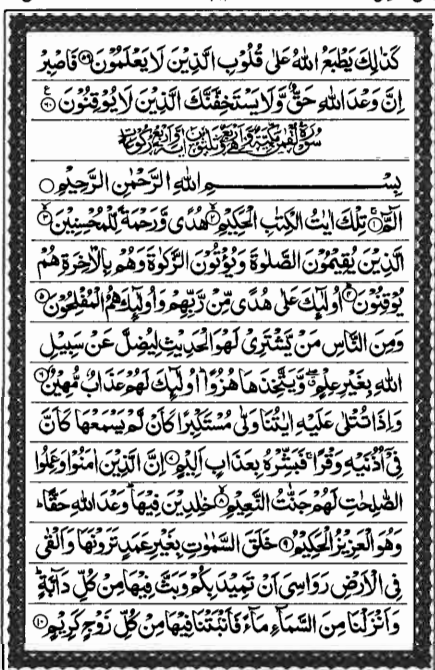 كَذٰلِكَ يَطْبَعُ اللّٰهُ عَلٰى قُلُوْبِ الَّذِيْنَ لَا يَعْلَمُوْنَ ۝۵۹ فَاصْبِرْ
اِنَّ وَعْدَ اللّٰهِ حَقٌّ وَّلَا يَسْتَخِفَّنَّكَ الَّذِيْنَ لَا يُوْقِنُوْنَ ۝۶۰
سُوْرَةُ لُقْمٰنَ مَكِّيَّةٌ وَّهِيَ اَرْبَعٌ وَّثَلٰثُوْنَ اٰيَةً وَّاَرْبَعُ رُكُوْعَاتٍ
بِسْمِ اللّٰهِ الرَّحْمٰنِ الرَّحِيْمِ ۝
الٓمّٓ ۝۱ تِلْكَ اٰيٰتُ الْكِتٰبِ الْحَكِيْمِ ۝۲ هُدًى وَّرَحْمَةً لِّلْمُحْسِنِيْنَ ۝۳
الَّذِيْنَ يُقِيْمُوْنَ الصَّلٰوةَ وَيُؤْتُوْنَ الزَّكٰوةَ وَهُمْ بِالْاٰخِرَةِ هُمْ
يُوْقِنُوْنَ ۝۴ اُولٰٓئِكَ عَلٰى هُدًى مِّنْ رَّبِّهِمْ وَاُولٰٓئِكَ هُمُ الْمُفْلِحُوْنَ ۝۵
وَمِنَ النَّاسِ مَنْ يَّشْتَرِيْ لَهْوَ الْحَدِيْثِ لِيُضِلَّ عَنْ سَبِيْلِ
اللّٰهِ بِغَيْرِ عِلْمٍ وَّيَتَّخِذَهَا هُزُوًا اُولٰٓئِكَ لَهُمْ عَذَابٌ مُّهِيْنٌ ۝۶
وَاِذَا تُتْلٰى عَلَيْهِ اٰيٰتُنَا وَلّٰى مُسْتَكْبِرًا كَاَنْ لَّمْ يَسْمَعْهَا كَاَنَّ
فِيْٓ اُذُنَيْهِ وَقْرًا فَبَشِّرْهُ بِعَذَابٍ اَلِيْمٍ ۝۷ اِنَّ الَّذِيْنَ اٰمَنُوْا وَعَمِلُوا
الصّٰلِحٰتِ لَهُمْ جَنّٰتُ النَّعِيْمِ ۝۸ خٰلِدِيْنَ فِيْهَا وَعْدَ اللّٰهِ حَقًّا
وَهُوَ الْعَزِيْزُ الْحَكِيْمُ ۝۹ خَلَقَ السَّمٰوٰتِ بِغَيْرِ عَمَدٍ تَرَوْنَهَا وَاَلْقٰى
فِي الْاَرْضِ رَوَاسِيَ اَنْ تَمِيْدَ بِكُمْ وَبَثَّ فِيْهَا مِنْ كُلِّ دَآبَّةٍ
وَاَنْزَلْنَا مِنَ السَّمَآءِ مَآءً فَاَنْۢبَتْنَا فِيْهَا مِنْ كُلِّ زَوْجٍ كَرِيْمٍ ۝۱۰